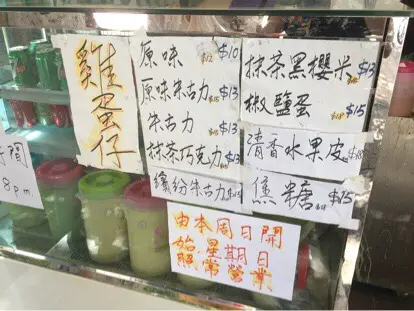 雞蛋仔
原味 $10
原味朱古力 $13
朱古力 $13
抹茶巧克力 $13
繽紛朱古力 $15
抹茶黑櫻米 $13
椒鹽蛋 $15
清香水果皮
焦糖 $15
由本周日開
始,星期日
照常營業
間
8pm